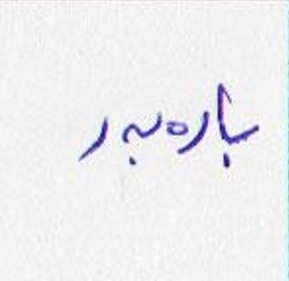 بارەبەر